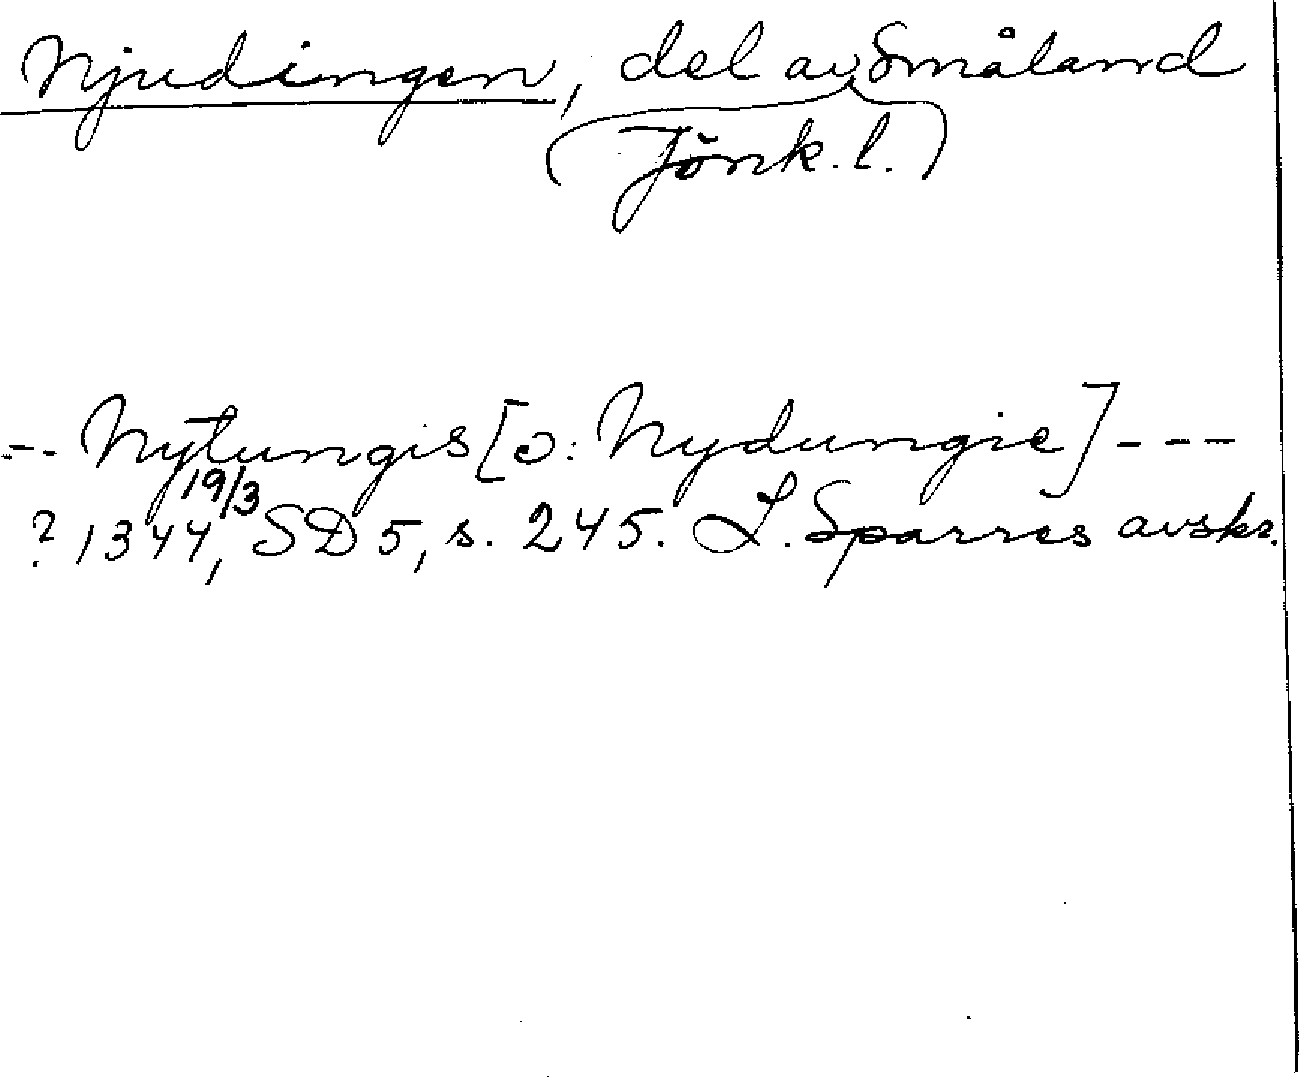 Njudingen, del av Småland
(Jönk. l.)
-- Nytungis [ɔ: Nydungie] ---
? 1344 19/3, SD 5, s. 245. L. Sparres avskr.